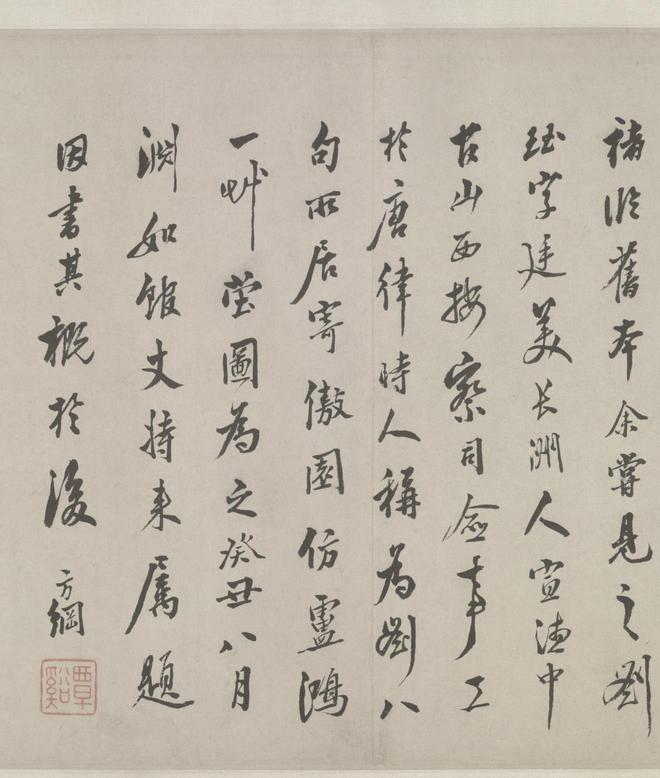 褚临舊本余嘗見之劉
珏字廷美长洲人宣德中
官山西按察司僉事工
於唐律時人稱為劉八
句所居寄傲園仿盧鴻
一艸堂圖為之癸丑八月
淵如館丈持来属題
因書其概於後
方綱
覃谿